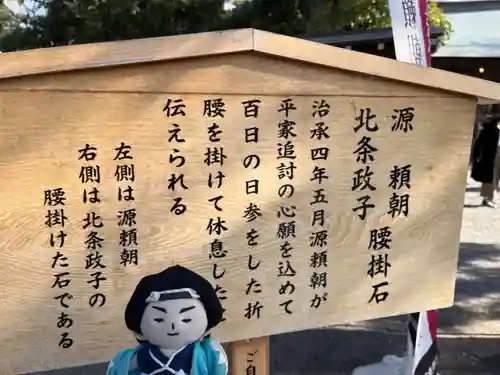 源頼朝
北条政子 腰掛石
治承四年五月源頼朝が
平家追討の心願を込めて
百日の日参をした折
腰を掛けて休息した
伝えられる
左側は源頼朝
右側は北条政子の
腰掛けた石である